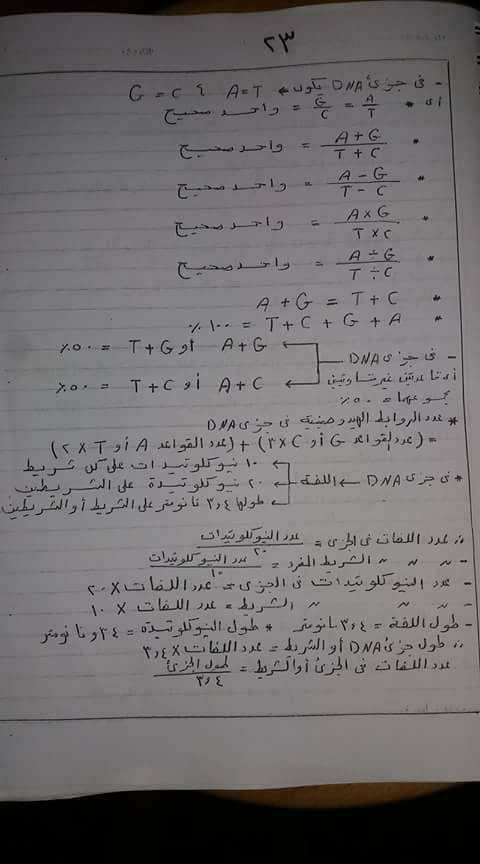 ٢٣
- فى جزئ DNA يكون ← A=T ، G = C
* أى A/T = G/C = واحد صحيح
* A+G / T+C = واحد صحيح
* A-G / T-C = واحد صحيح
* A×G / T×C = واحد صحيح
* A÷G / T÷C = واحد صحيح
* A+G = T+C
* A + G + C + T = ١٠٠٪
A+G أو T+G = ٥٠٪
- فى جزئ DNA
أى قاعدتين غير متساويتين
A+C أو T+C = ٥٠٪
مجموعهما = ٥٠٪
* عدد الروابط الهيدروجينية فى جزئ DNA
= (عدد القواعد G أو C ×٣) + (عدد القواعد A أو T ×٢)
١٠ نيوكلوتيدات على كل شريط
* فى جزئ DNA ← اللفة ← ٢٠ نيوكلوتيدة على الشريطين
طولها ٣٫٤ نانومتر على الشريط أو الشريطين
∴ عدد اللفات فى الجزئ = عدد النيوكلوتيدات / ٢٠
- 〃 〃 〃 الشريط المفرد = عدد النيوكلوتيدات / ١٠
- عدد النيوكلوتيدات فى الجزئ = عدد اللفات × ٢٠
- 〃 〃 〃 الشريط = عدد اللفات × ١٠
- طول اللفة = ٣٫٤ نانومتر * طول النيوكلوتيدة = ٣٤و نانومتر
∴ طول جزئ DNA أو الشريط = عدد اللفات × ٣٫٤
عدد اللفات فى الجزئ أو الشريط = طول الجزئ / ٣٫٤